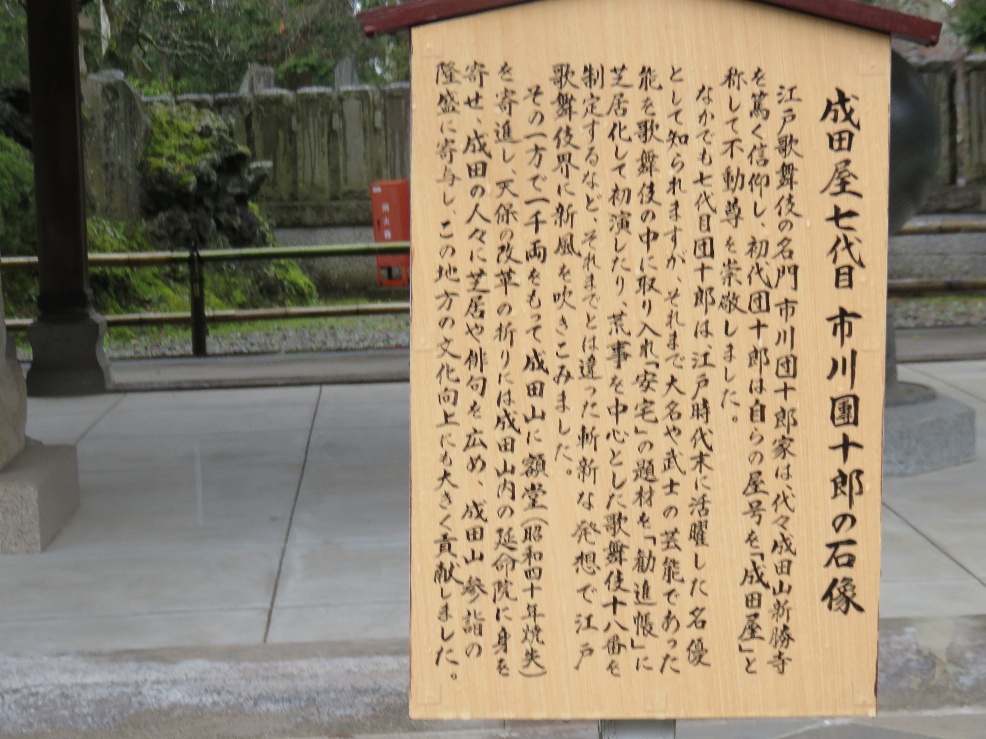 成田屋七代目 市川團十郎の石像
江戸歌舞伎の名門市川団十郎家は、代々成田山新勝寺
を篤く信仰し、初代団十郎は自らの屋号を「成田屋」と
称して不動尊を崇敬しました。
なかでも七代目団十郎は江戸時代末に活躍した名優
として知られますが、それまで大名や武士の芸能であった
能を歌舞伎の中に取り入れ「安宅」の題材を、「勧進帳」に
芝居化して初演したり、荒事を中心とした歌舞伎十八番を
制定するなど、それまでとは違った斬新な発想で江戸
歌舞伎界に新風を吹きこみました。
その一方で一千両をもって成田山に額堂(昭和四十年焼失)
を寄進し、天保の改革の折りには成田山内の延命院に身を
寄せ、成田の人々に芝居や俳句を広め、成田山参詣の
隆盛に寄与し、この地方の文化向上にも大きく貢献しました。